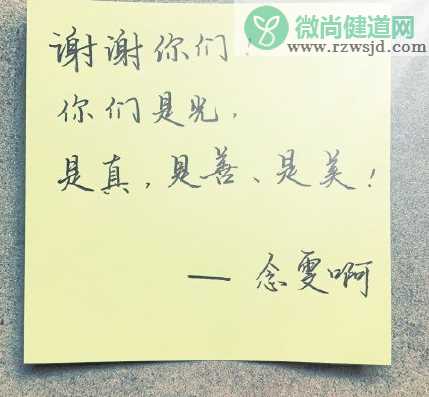 微尚健道网
www.rzwsjd.com
谢谢你们！
你们是光，
是真，是善、是美！
— 念雯啊